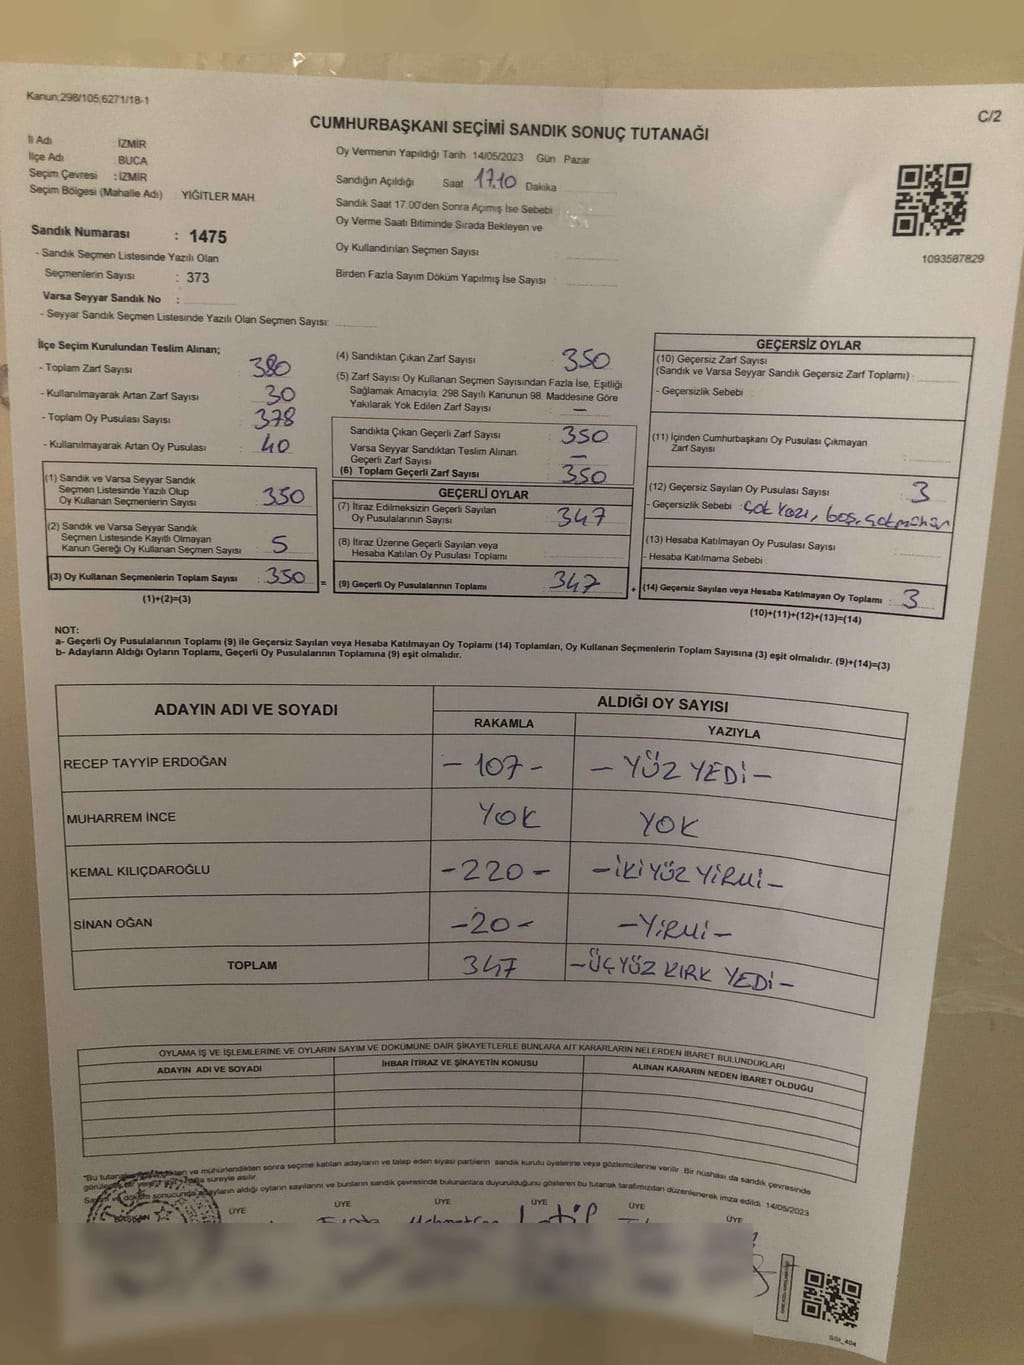 Kanun;298/105;6271/18-1
C/2
CUMHURBAŞKANI SEÇİMİ SANDIK SONUÇ TUTANAĞI
İl Adı : İZMİR
İlçe Adı : BUCA
Seçim Çevresi : İZMİR
Seçim Bölgesi (Mahalle Adı) : YİĞİTLER MAH.
Sandık Numarası : 1475
- Sandık Seçmen Listesinde Yazılı Olan
Seçmenlerin Sayısı : 373
Varsa Seyyar Sandık No :
- Seyyar Sandık Seçmen Listesinde Yazılı Olan Seçmen Sayısı:
Oy Vermenin Yapıldığı Tarih 14/05/2023 Gün Pazar
Sandığın Açıldığı Saat 17.10 Dakika
Sandık Saat 17.00'den Sonra Açımış İse Sebebi
Oy Verme Saati Bitiminde Sırada Bekleyen ve
Oy Kullandırılan Seçmen Sayısı :
Birden Fazla Sayım Döküm Yapılmış İse Sayısı :
1093587829
İlçe Seçim Kurulundan Teslim Alınan;
- Toplam Zarf Sayısı : 380
- Kullanılmayarak Artan Zarf Sayısı : 30
- Toplam Oy Pusulası Sayısı : 378
- Kullanılmayarak Artan Oy Pusulası : 40
(1) Sandık ve Varsa Seyyar Sandık
Seçmen Listesinde Yazılı Olup
Oy Kullanan Seçmenlerin Sayısı : 350
(2) Sandık ve Varsa Seyyar Sandık
Seçmen Listesinde Kayıtlı Olmayan
Kanun Gereği Oy Kullanan Seçmen Sayısı : 5
(3) Oy Kullanan Seçmenlerin Toplam Sayısı : 350 =
(1)+(2)=(3)
(4) Sandıktan Çıkan Zarf Sayısı : 350
(5) Zarf Sayısı Oy Kullanan Seçmen Sayısından Fazla İse, Eşitliği
Sağlamak Amacıyla, 298 Sayılı Kanunun 98. Maddesine Göre
Yakılarak Yok Edilen Zarf Sayısı : —
Sandıkta Çıkan Geçerli Zarf Sayısı : 350
Varsa Seyyar Sandıktan Teslim Alınan
Geçerli Zarf Sayısı : —
(6) Toplam Geçerli Zarf Sayısı : 350
GEÇERLİ OYLAR
(7) İtiraz Edilmeksizin Geçerli Sayılan
Oy Pusulalarının Sayısı : 347
(8) İtiraz Üzerine Geçerli Sayılan veya
Hesaba Katılan Oy Pusulası Toplamı :
(9) Geçerli Oy Pusulalarının Toplamı : 347 +
GEÇERSİZ OYLAR
(10) Geçersiz Zarf Sayısı
(Sandık ve Varsa Seyyar Sandık Geçersiz Zarf Toplamı) :
- Geçersizlik Sebebi :
(11) İçinden Cumhurbaşkanı Oy Pusulası Çıkmayan
Zarf Sayısı :
(12) Geçersiz Sayılan Oy Pusulası Sayısı : 3
- Geçersizlik Sebebi : çok yazı, boş, çok mühür
(13) Hesaba Katılmayan Oy Pusulası Sayısı :
- Hesaba Katılmama Sebebi :
(14) Geçersiz Sayılan veya Hesaba Katılmayan Oy Toplamı : 3
(10)+(11)+(12)+(13)=(14)
NOT:
a- Geçerli Oy Pusulalarının Toplamı (9) ile Geçersiz Sayılan veya Hesaba Katılmayan Oy Toplamı (14) Toplamları, Oy Kullanan Seçmenlerin Toplam Sayısına (3) eşit olmalıdır. (9)+(14)=(3)
b- Adayların Aldığı Oyların Toplamı, Geçerli Oy Pusulalarının Toplamına (9) eşit olmalıdır.
ADAYIN ADI VE SOYADI
ALDIĞI OY SAYISI
RAKAMLA YAZIYLA
RECEP TAYYİP ERDOĞAN - 107 - - YÜZ YEDİ -
MUHARREM İNCE YOK YOK
KEMAL KILIÇDAROĞLU - 220 - - İKİ YÜZ YİRMİ -
SİNAN OĞAN - 20 - - YİRMİ -
TOPLAM 347 - ÜÇ YÜZ KIRK YEDİ -
OYLAMA İŞ VE İŞLEMLERİNE VE OYLARIN SAYIM VE DÖKÜMÜNE DAİR ŞİKAYETLERLE BUNLARA AİT KARARLARIN NELERDEN İBARET BULUNDUKLARI
ADAYIN ADI VE SOYADI İHBAR İTİRAZ VE ŞİKAYETİN KONUSU ALINAN KARARIN NEDEN İBARET OLDUĞU
*Bu tutanak ve mühürlendikten sonra seçime katılan adayların ve talep eden siyasi partilerin sandık kurulu üyelerine veya gözlemcilerine verilir. Bir nüshası da sandık çevresinde
süreyle asılır.
Sayım ve döküm sonucunda adayların aldığı oyların sayılarını ve bunların sandık çevresinde bulunanlara duyurulduğunu gösteren bu tutanak tarafımızdan düzenlenerek imza edildi. 14/05/2023
BAŞKAN ÜYE ÜYE ÜYE ÜYE ÜYE ÜYE
SSI_404